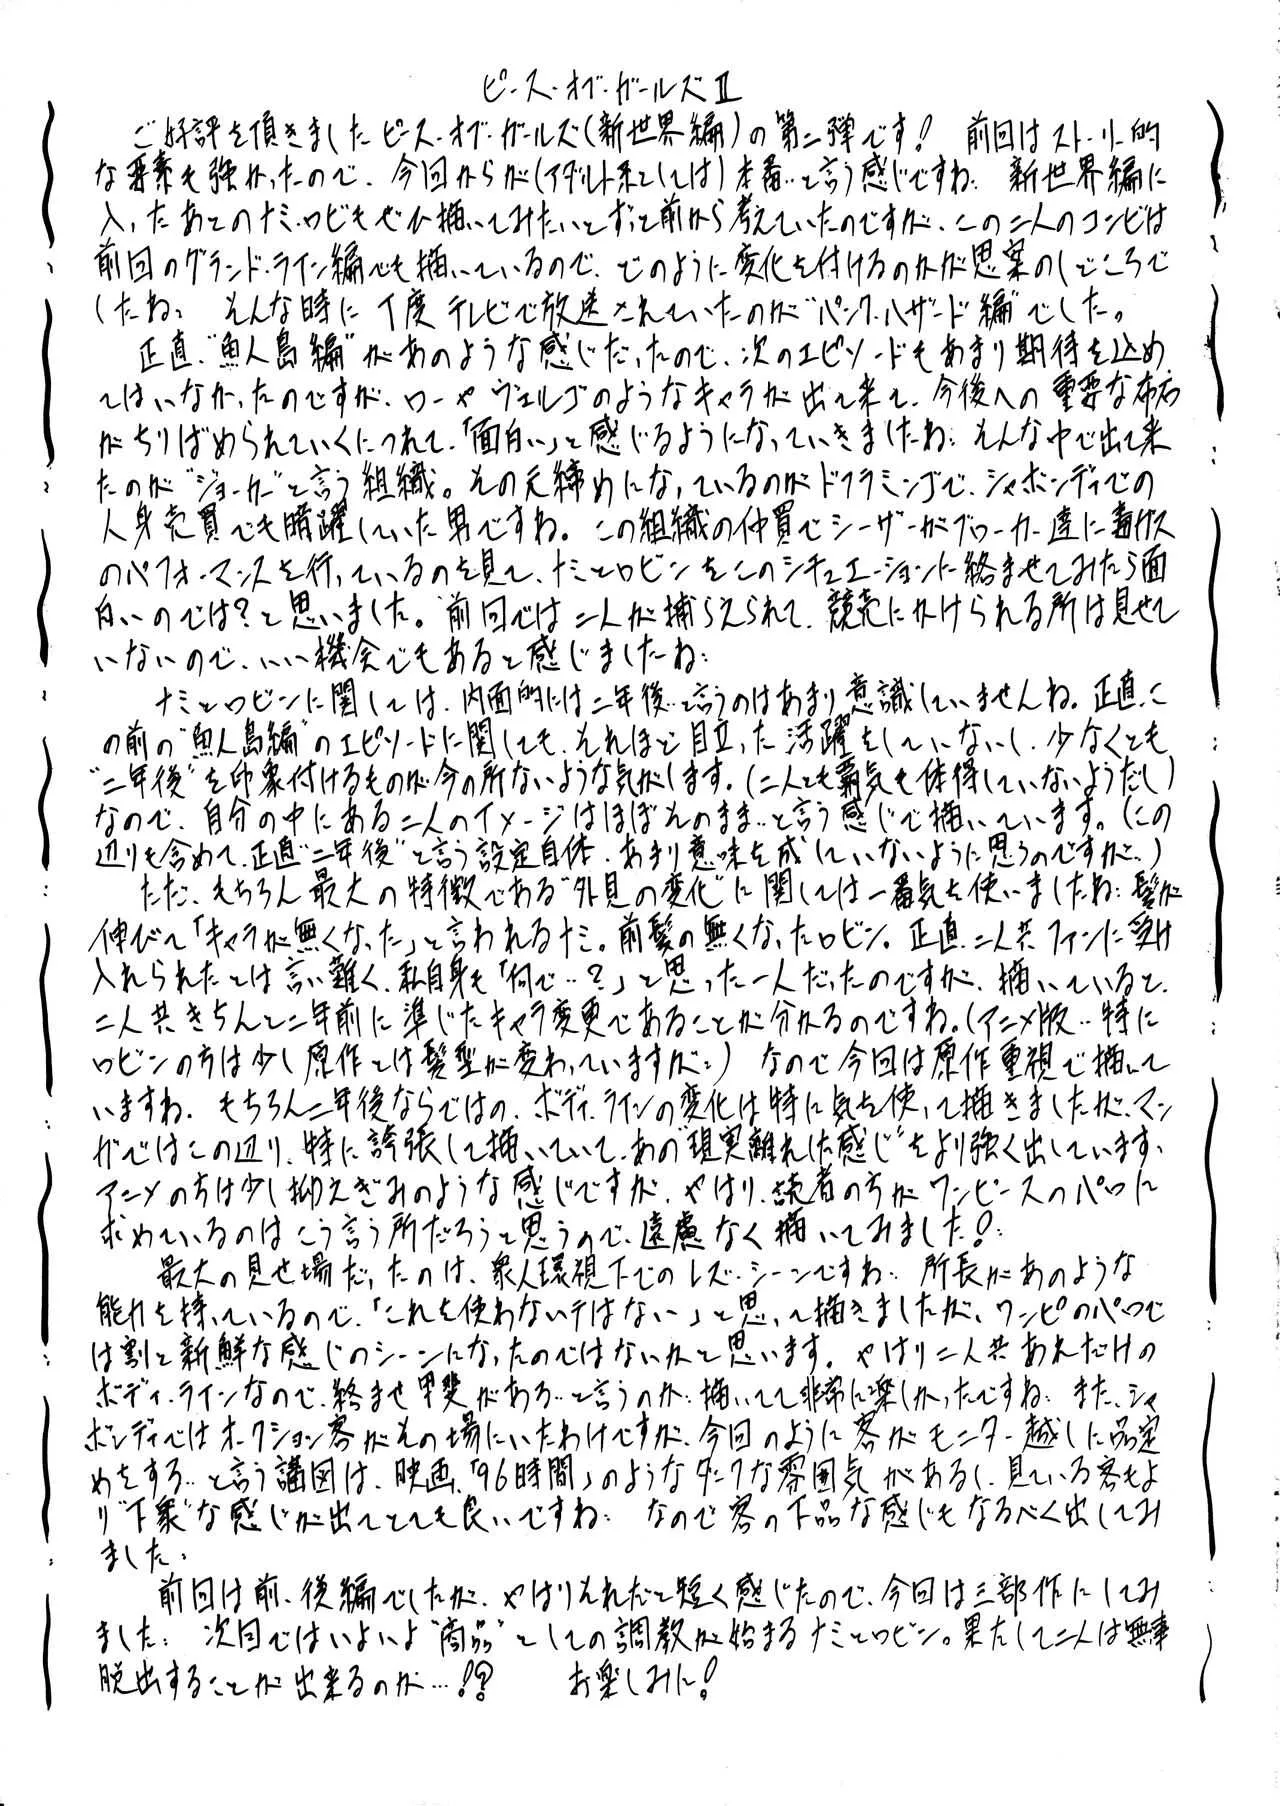 ピース・オブ・ガールズⅡ
ご好評を頂きましたピース・オブ・ガールズ(新世界編)の第二弾です! 前回はストーリー的
な要素も強かったので、今回からが(アダルト系としては)本番‥と言う感じですね‥ 新世界編に
入ったあとのナミ・ロビもぜひ描いてみたいとずっと前から考えていたのですが、この二人のコンビは
前回のグランド・ライン編でも描いているので、どのように変化を付けるのかが思案のしどころで
したね‥ そんな時に丁度テレビで放送されていたのが"パンク・ハザード編"でした。
正直、"魚人島編"があのような感じだったので、次のエピソードもあまり期待を込め
てはいなかったのですが、ローやヴェルゴのようなキャラが出て来て、今後への重要な布石
がちりばめられていくにつれて、「面白い」と感じるようになっていきましたね‥ そんな中で出て来
たのが"ジョーカー"と言う組織。その元締めになっているのがドフラミンゴで、シャボンディでの
人身売買でも暗躍していた男ですね。この組織の仲買でシーザーがブローカー達に毒ガス
のパフォーマンスを行っているのを見て、ナミとロビンをこのシチュエーションに絡ませてみたら面
白いのでは?と思いました。前回では二人が捕らえられて、競売にかけられる所は見せて
いないので、いい機会でもあると感じましたね‥
ナミとロビンに関しては、内面的には二年後‥と言うのはあまり意識していませんね。正直、こ
の前の"魚人島編"のエピソードに関しても、それほど目立った活躍をしていないし、少なくとも
"二年後"を印象付けるものが今の所ないような気がします。(二人とも覇気も体得していないようだし)
なので、自分の中にある二人のイメージはほぼそのまま‥と言う感じで描いています。(この
辺りも含めて、正直"二年後"と言う設定自体、あまり意味を成していないように思うのですが‥)
ただ、もちろん最大の特徴である"外見の変化"に関しては一番気を使いましたね‥髪が
伸びて「キャラが無くなった」と言われるナミ。前髪の無くなったロビン。正直、二人共ファンに受け
入れられたとは言い難く、私自身も「何で‥?」と思った一人だったのですが、描いていると、
二人共きちんと二年前に準じたキャラ変更であることが分かるのですね。(アニメ版‥特に
ロビンの方は少し原作とは髪型が変わっていますが‥) なので今回は原作重視で描いて
いますね。もちろん二年後ならではの、ボディ・ラインの変化は特に気を使って描きましたが、マン
ガではこの辺り、特に誇張して描いていて、あの"現実離れした感じ"をより強く出しています。
アニメの方は少し抑えぎみのような感じですが、やはり、読者の方がワンピースのパロに
求めているのはこう言う所だろうと思うので、遠慮なく描いてみました!‥
最大の見せ場だったのは、衆人環視下でのレズ・シーンですね‥ 所長があのような
能力を持っているので、「これを使わないテはない」と思って描きましたが、ワンピのパロで
は割と新鮮な感じのシーンになったのではないかと思います。やはり二人共あれだけHの
ボディ・ラインなので、絡ませ甲斐がある‥と言うのか‥描いてて非常に楽しかったですね‥ また、シャ
ボンディではオークション客がその場にいたわけですが、今回のように客がモニター越しに品定
めをする‥と言う構図は、映画「96時間」のようなダークな雰囲気があるし、見ている客もよ
り"下衆"な感じが出てとても良いですね‥ なので客の下品な感じもなるべく出してみ
ました。
前回は前、後編でしたが、やはりそれだと短く感じたので、今回は三部作にしてみ
ました‥ 次回ではいよいよ"商品"としての調教が始まるナミとロビン。果たして二人は無事
脱出することが出来るのか…!? お楽しみに!